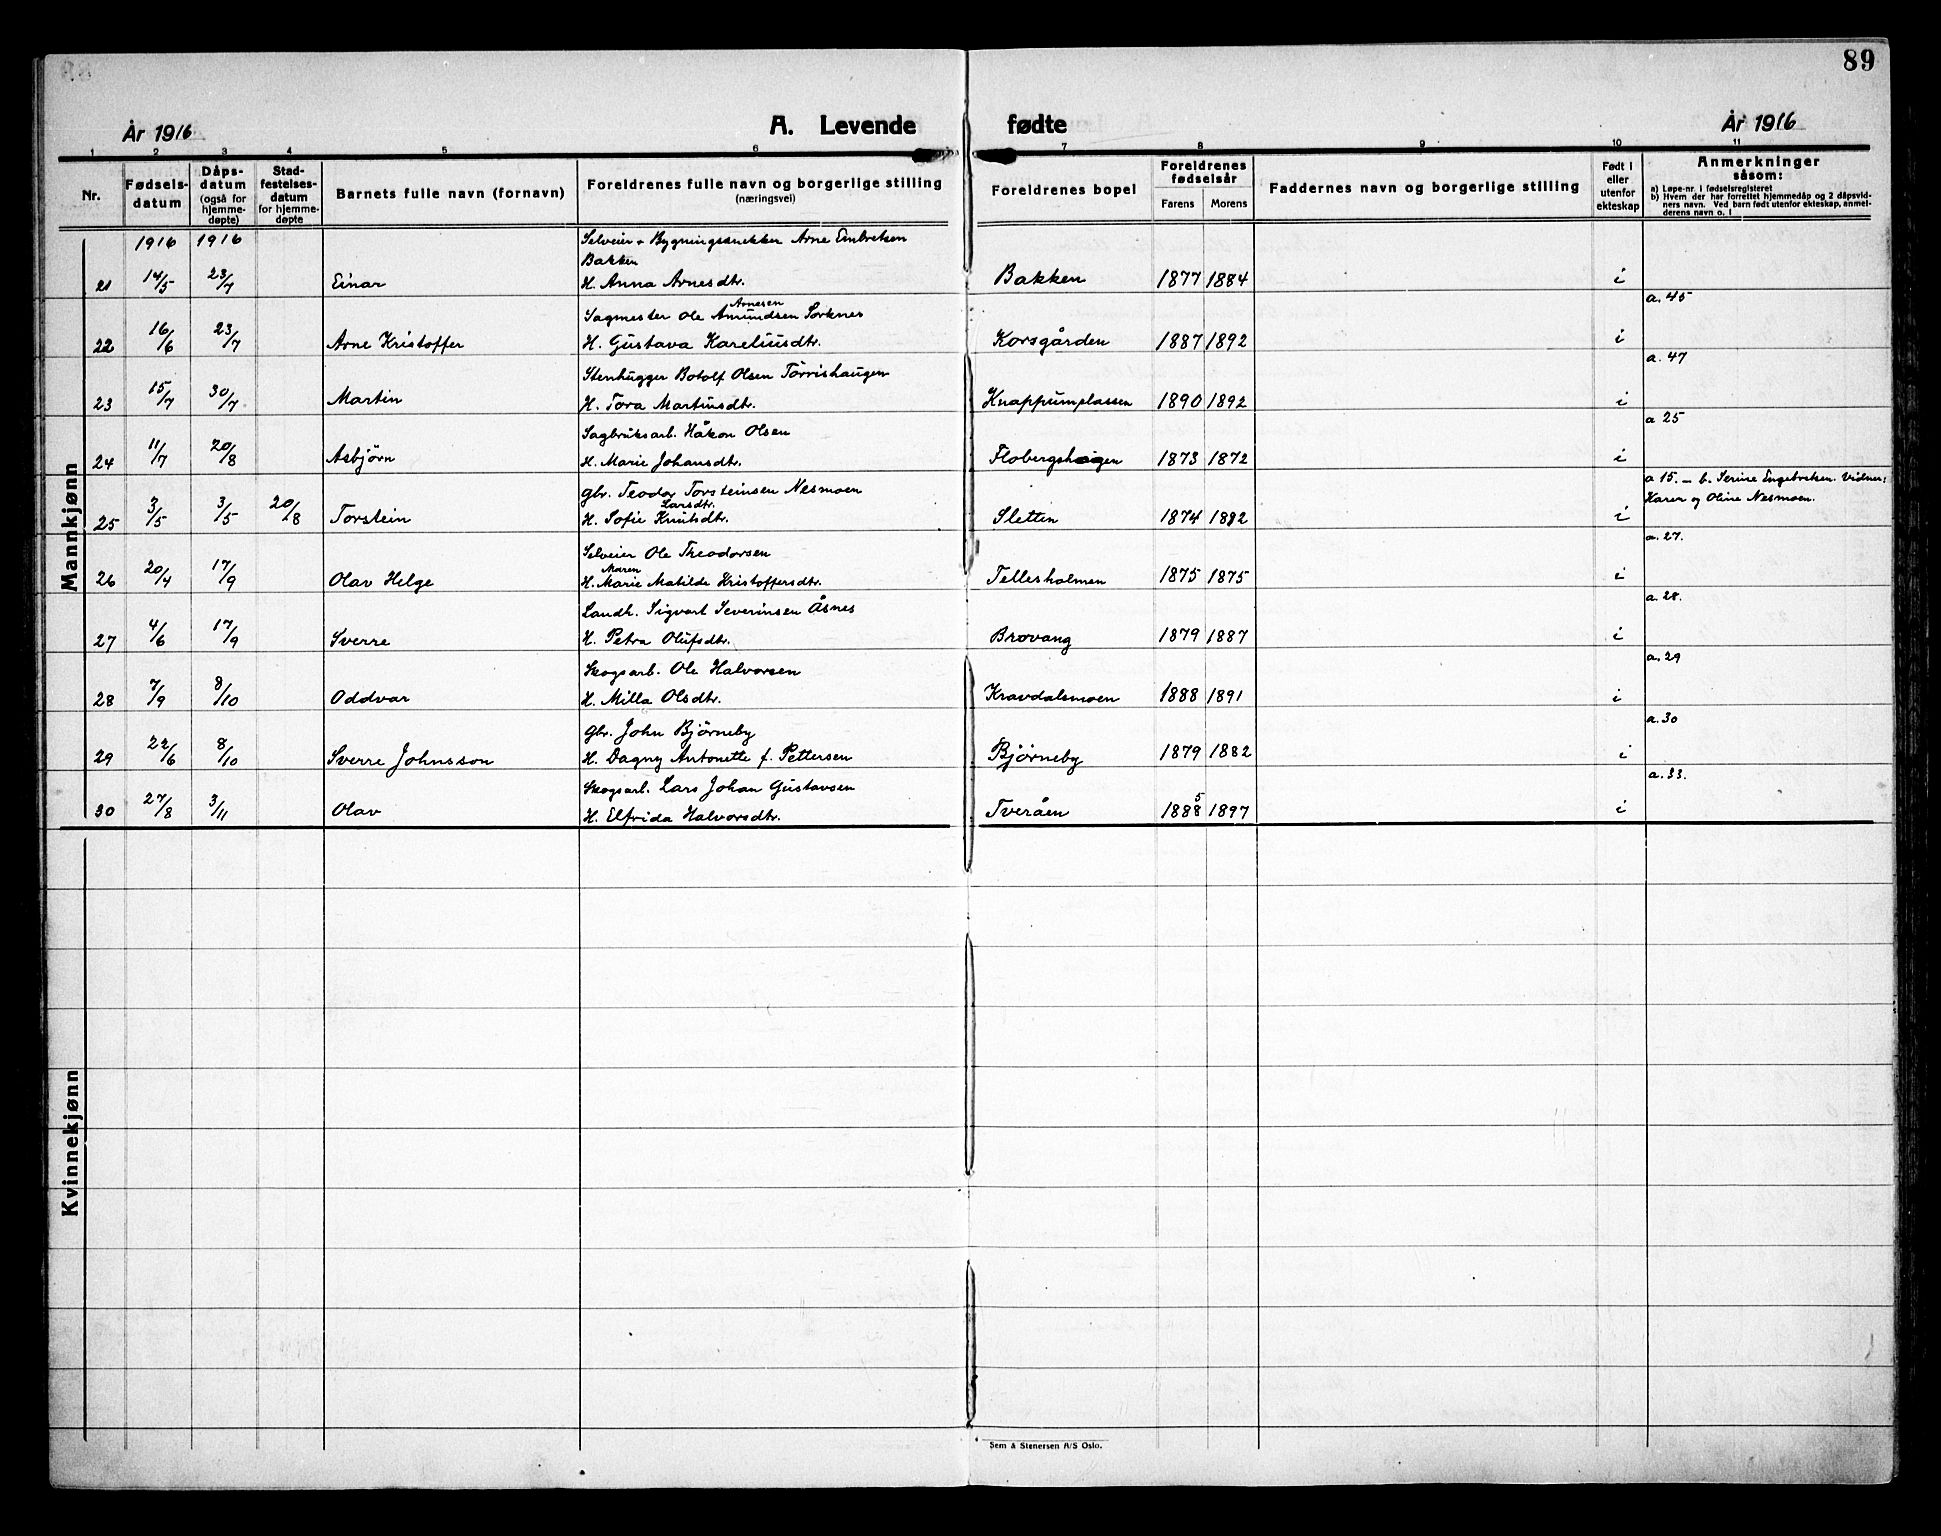 89
År 1916 A. Levende fødte År 1916
1 2 3 4 5 6 7 8 9 10 11
Nr. Fødselsdatum Dåpsdatum (også for hjemmedøpte) Stadfestelsesdatum for hjemmedøpte Barnets fulle navn (fornavn) Foreldrenes fulle navn og borgerlige stilling (næringsvei) Foreldrenes bopel Foreldrenes fødselsår Farens Morens Faddernes navn og borgerlige stilling Født i eller utenfor ekteskap Anmerkninger såsom:
a) Løpe-nr. i fødselsregisteret
b) Hvem der har forrettet hjemmedåp og 2 dåpsvidners navn. Ved barn født utenfor ekteskap, anmelderens navn o. l
Mannkjønn
1916 1916 Selveier + Bygningssnekker Arne Embretsen
Bakken
21 14/5 23/7 Einar H. Anna Arnesdtr. Bakken 1877 1884 i
Arnesen a. 45
Sagmester Ole Amundsen Sorknes
22 16/6 23/7 Arne Kristoffer H. Gustava Kareliusdtr. Korsgården 1887 1892 i
Stenhugger Botolf Olsen Törrishaugen a. 47
23 15/7 30/7 Martin H. Tora Martinsdtr. Knappumplassen 1890 1892 i
Sagbruksarb. Håkon Olsen a 25
24 11/7 20/8 Asbjörn H. Marie Johansdtr. Flobergshagen 1873 1872 i
Gbr. Teodor Torsteinsen Nesmoen a 15. – b. Serine Engebretsen. Vidner:
Larsdtr. Karen og Oline Nesmoen.
25 3/5 3/5 20/8 Torstein H. Sofie Knutsdtr. Sletten 1874 1882 i
Selveier Ole Theodorsen a. 27.
Maren
26 20/4 17/9 Olav Helge H. Marie Matilde Kristoffersdtr. Tellesholmen 1875 1875 i
Landh. Sigvart Severinsen Åsnes a. 28.
27 4/6 17/9 Sverre H. Petra Olufsdtr. Brovang 1879 1887 i
Skogsarb. Ole Halvorsen a. 29
28 7/9 8/10 Oddvar H. Milla Olsdtr. Kravdalsmoen 1888 1891 i
Gbr. John Bjørneby a. 30
29 22/6 8/10 Sverre Johnsson H. Dagny Antonette f. Pettersen Bjørneby 1879 1882 i
Skogsarb. Lars Johan Gustavsen a. 33.
5
30 27/8 3/11 Olav H. Elfrida Halvorsdtr. Tveråen 1888 1897 i
Kvinnekjønn
Sem & Stenersen A/S Oslo.